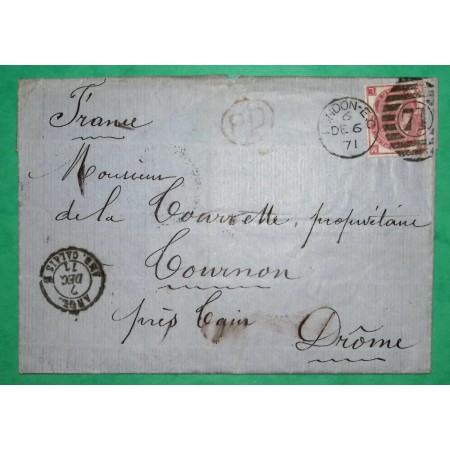 France
PD
LONDON-E.C
6
DE 6
71
Monsieur
de la Tourrette, propriétaire
Tournon
près Tain
Drôme
ANGL.
7
DEC.
71
AMB. CALAIS